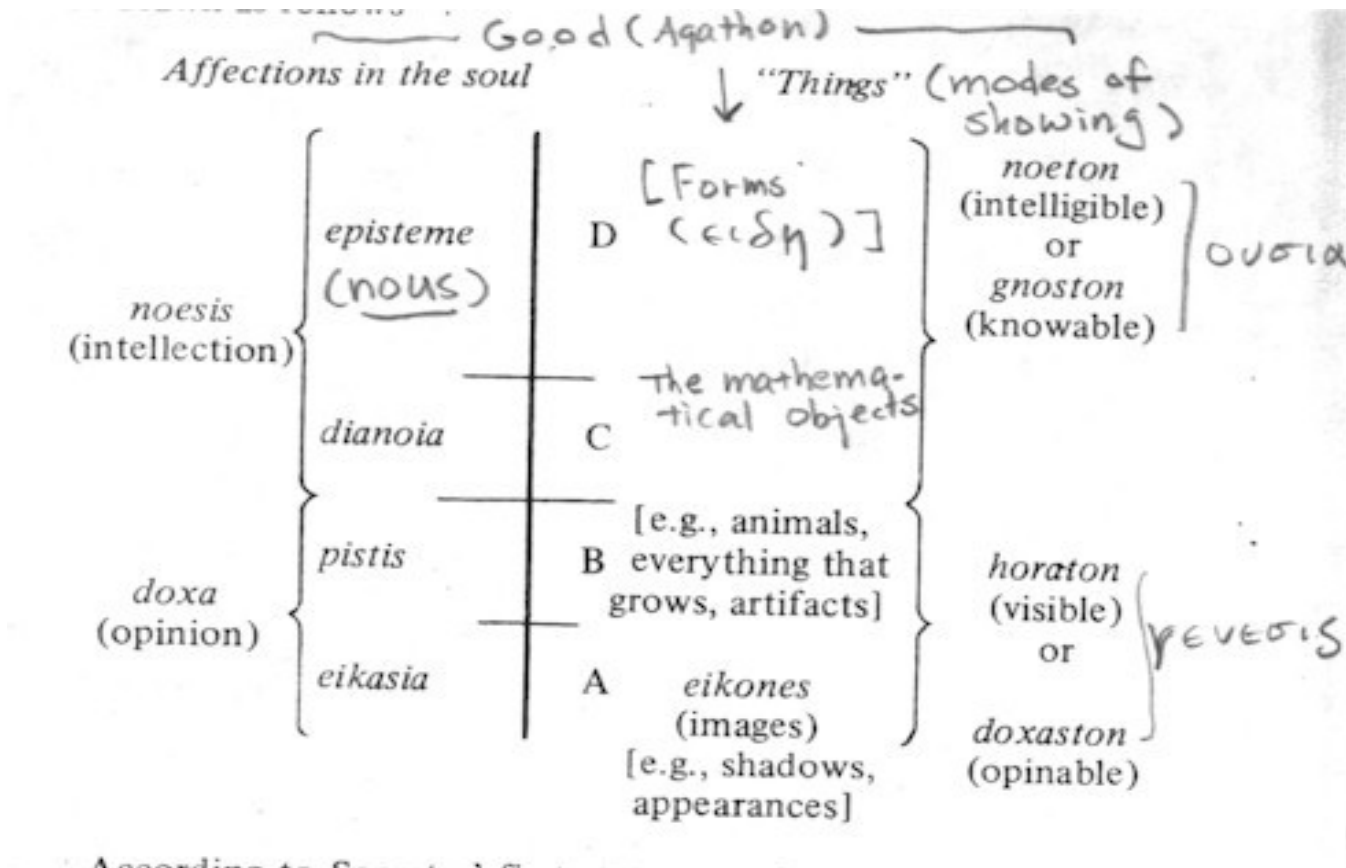 Good (Agathon)
Affections in the soul
"Things" (modes of
showing)
episteme
(nous)
noesis
(intellection)
dianoia
pistis
doxa
(opinion)
eikasia
D
[Forms
(ειδη)]
C
The mathema-
tical objects
B
[e.g., animals,
everything that
grows, artifacts]
A
eikones
(images)
[e.g., shadows,
appearances]
noeton
(intelligible)
or
gnoston
(knowable)
ουσια
horaton
(visible)
or
doxaston
(opinable)
γενεσις